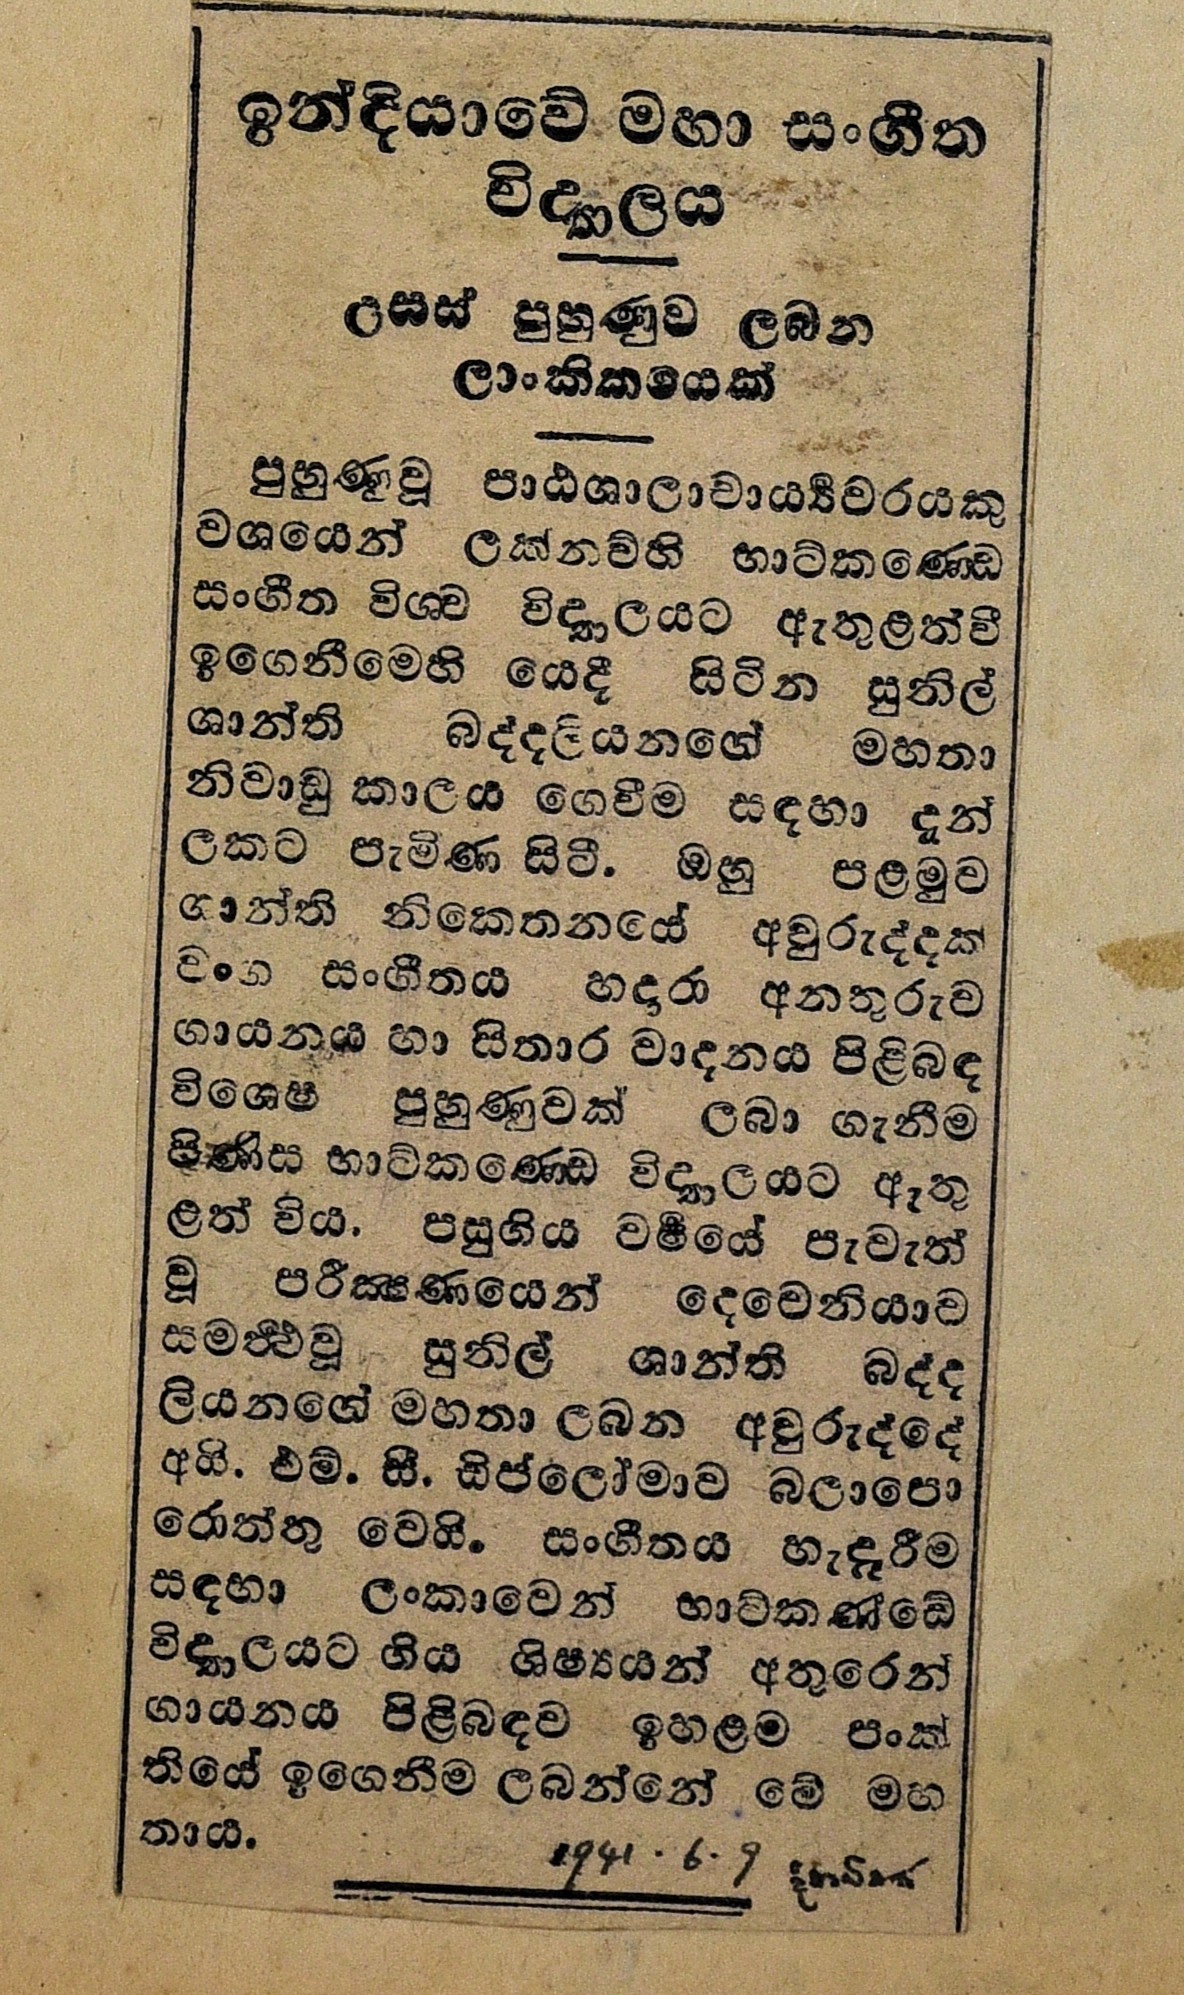 ඉන්දියාවේ මහා සංගීත
විද්‍යාලය
උසස් පුහුණුව ලබන
ලාංකිකයෙක්
පුහුණුවූ පාඨශාලාචාර්‍ය්‍යවරයකු
වශයෙන් ලක්නව්හි භාට්කණ්ඩෙ
සංගීත විශ්ව විද්‍යාලයට ඇතුළත්වී
ඉගෙනීමෙහි යෙදී සිටින සුනිල්
ශාන්ති බද්දලියනගේ මහතා
නිවාඩු කාලය ගෙවීම සඳහා දැන්
ලකට පැමිණ සිටී. ඔහු පළමුව
ශාන්ති නිකෙතනයේ අවුරුද්දක්
වංග සංගීතය හදාරා අනතුරුව
ගායනය හා සිතාර වාදනය පිළිබඳ
විශෙෂ පුහුණුවක් ලබා ගැනීම
පිණිස භාට්කණ්ඩෙ විද්‍යාලයට ඇතු
ළත් විය. පසුගිය වර්‍ෂයේ පැවැත්
වූ පරීක්‍ෂණයෙන් දෙවෙනියාව
සමර්‍ත්‍ථවූ සුනිල් ශාන්ති බද්ද
ලියනගේ මහතා ලබන අවුරුද්දේ
අයි. එම්. සී. ඩිප්ලෝමාව බලාපො
රොත්තු වෙයි. සංගීතය හැදෑරීම
සඳහා ලංකාවෙන් භාට්කණ්ඩේ
විද්‍යාලයට ගිය ශිෂ්‍යයන් අතුරෙන්
ගායනය පිළිබඳව ඉහළම පංක්
තියේ ඉගෙනීම ලබන්නේ මේ මහ
තාය.
1941.6.9